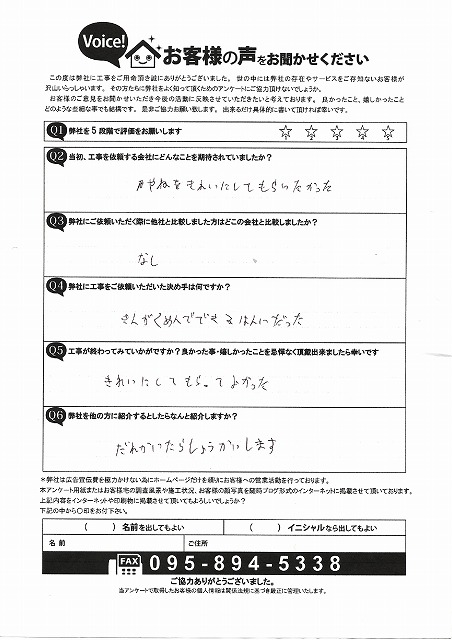 Voice!
お客様の声をお聞かせください
この度は弊社に工事をご用命頂き誠にありがとうございました。世の中には弊社の存在やサービスをご存知ないお客様が
沢山いらっしゃいます。その方たちに弊社をよく知って頂くためのアンケートにご協力頂けないでしょうか。
お客様のご意見をお聞かせいただき今後の活動に反映させていただきたいと考えております。良かったこと、嬉しかったこと
どのような些細な事でも結構です。是非ご協力お願い致します。出来るだけ具体的に書いて頂ければ幸いです。
Q1 弊社を5段階で評価をお願いします
☆ ☆ ☆ ☆ ☆
Q2 当初、工事を依頼する会社にどんなことを期待されていましたか?
やねをきれいにしてもらいたかった
Q3 弊社にご依頼いただく際に他社と比較しました方はどこの会社と比較しましたか?
なし
Q4 弊社に工事をご依頼いただいた決め手は何ですか?
きんがくめんでできるはんいだった
Q5 工事が終わってみていかがですか?良かった事・嬉しかったことを忌憚なく頂戴出来ましたら幸いです
きれいにしてもらってよかった
Q6 弊社を他の方に紹介するとしたらなんと紹介しますか?
だれかいたらしょうかいします
*弊社は広告宣伝費を極力かけない為にホームページだけを頼りにお客様への営業活動を行っております。
本アンケート用紙またはお客様宅の調査風景や施工状況、お客様の顔写真を随時ブログ形式のインターネットに掲載させて頂いております。
上記内容をインターネットや印刷物に掲載させて頂いてもよろしいでしょうか?
下記の中から〇印をお付下さい。
( )名前を出してもよい ( )イニシャルなら出してもよい
名前 ご住所
FAX 095-894-5338
ご協力ありがとうございました。
当アンケートで取得したお客様の個人情報は関係法規に基づき厳正に管理いたします。